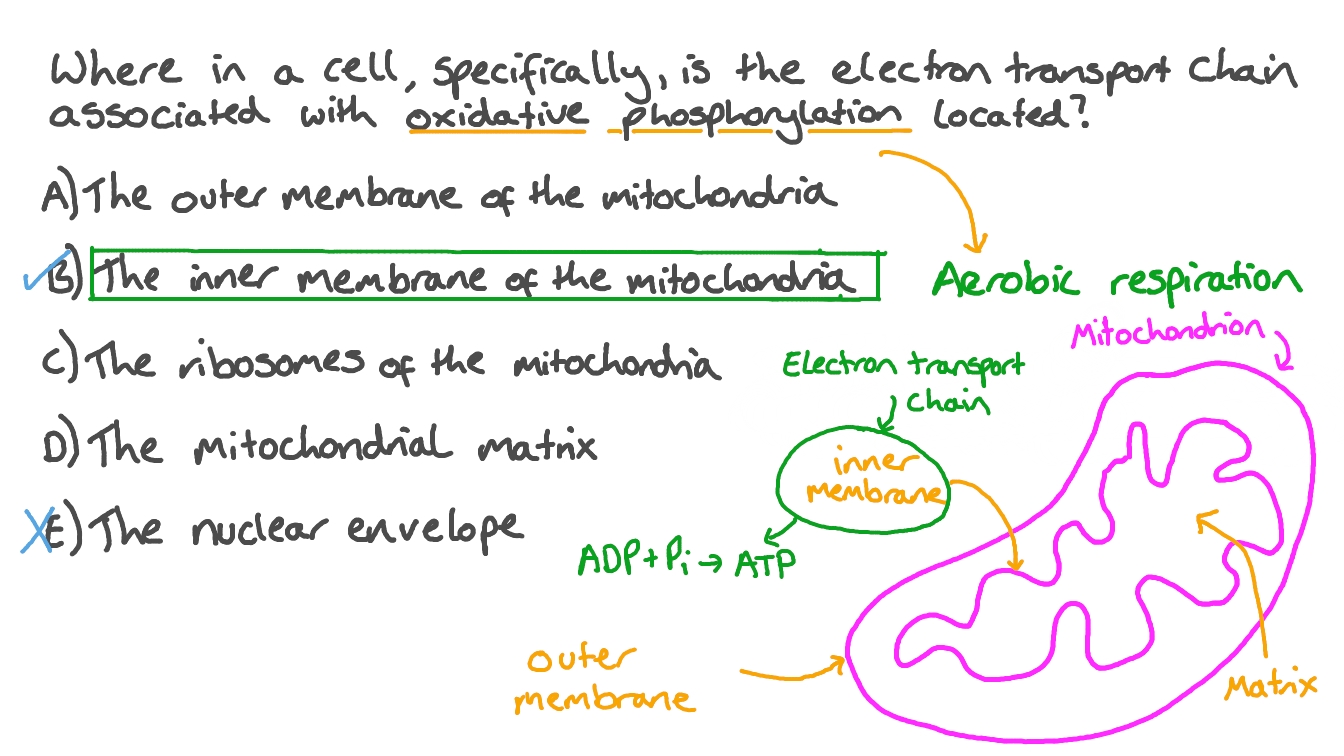 Where in a cell, specifically, is the electron transport chain
associated with oxidative phosphorylation located?
A) The outer membrane of the mitochondria
B) The inner membrane of the mitochondria
Aerobic respiration
Mitochondrion
C) The ribosomes of the mitochondria
Electron transport
chain
D) The mitochondrial matrix
inner
membrane
E) The nuclear envelope
ADP + Pi → ATP
outer
membrane
Matrix